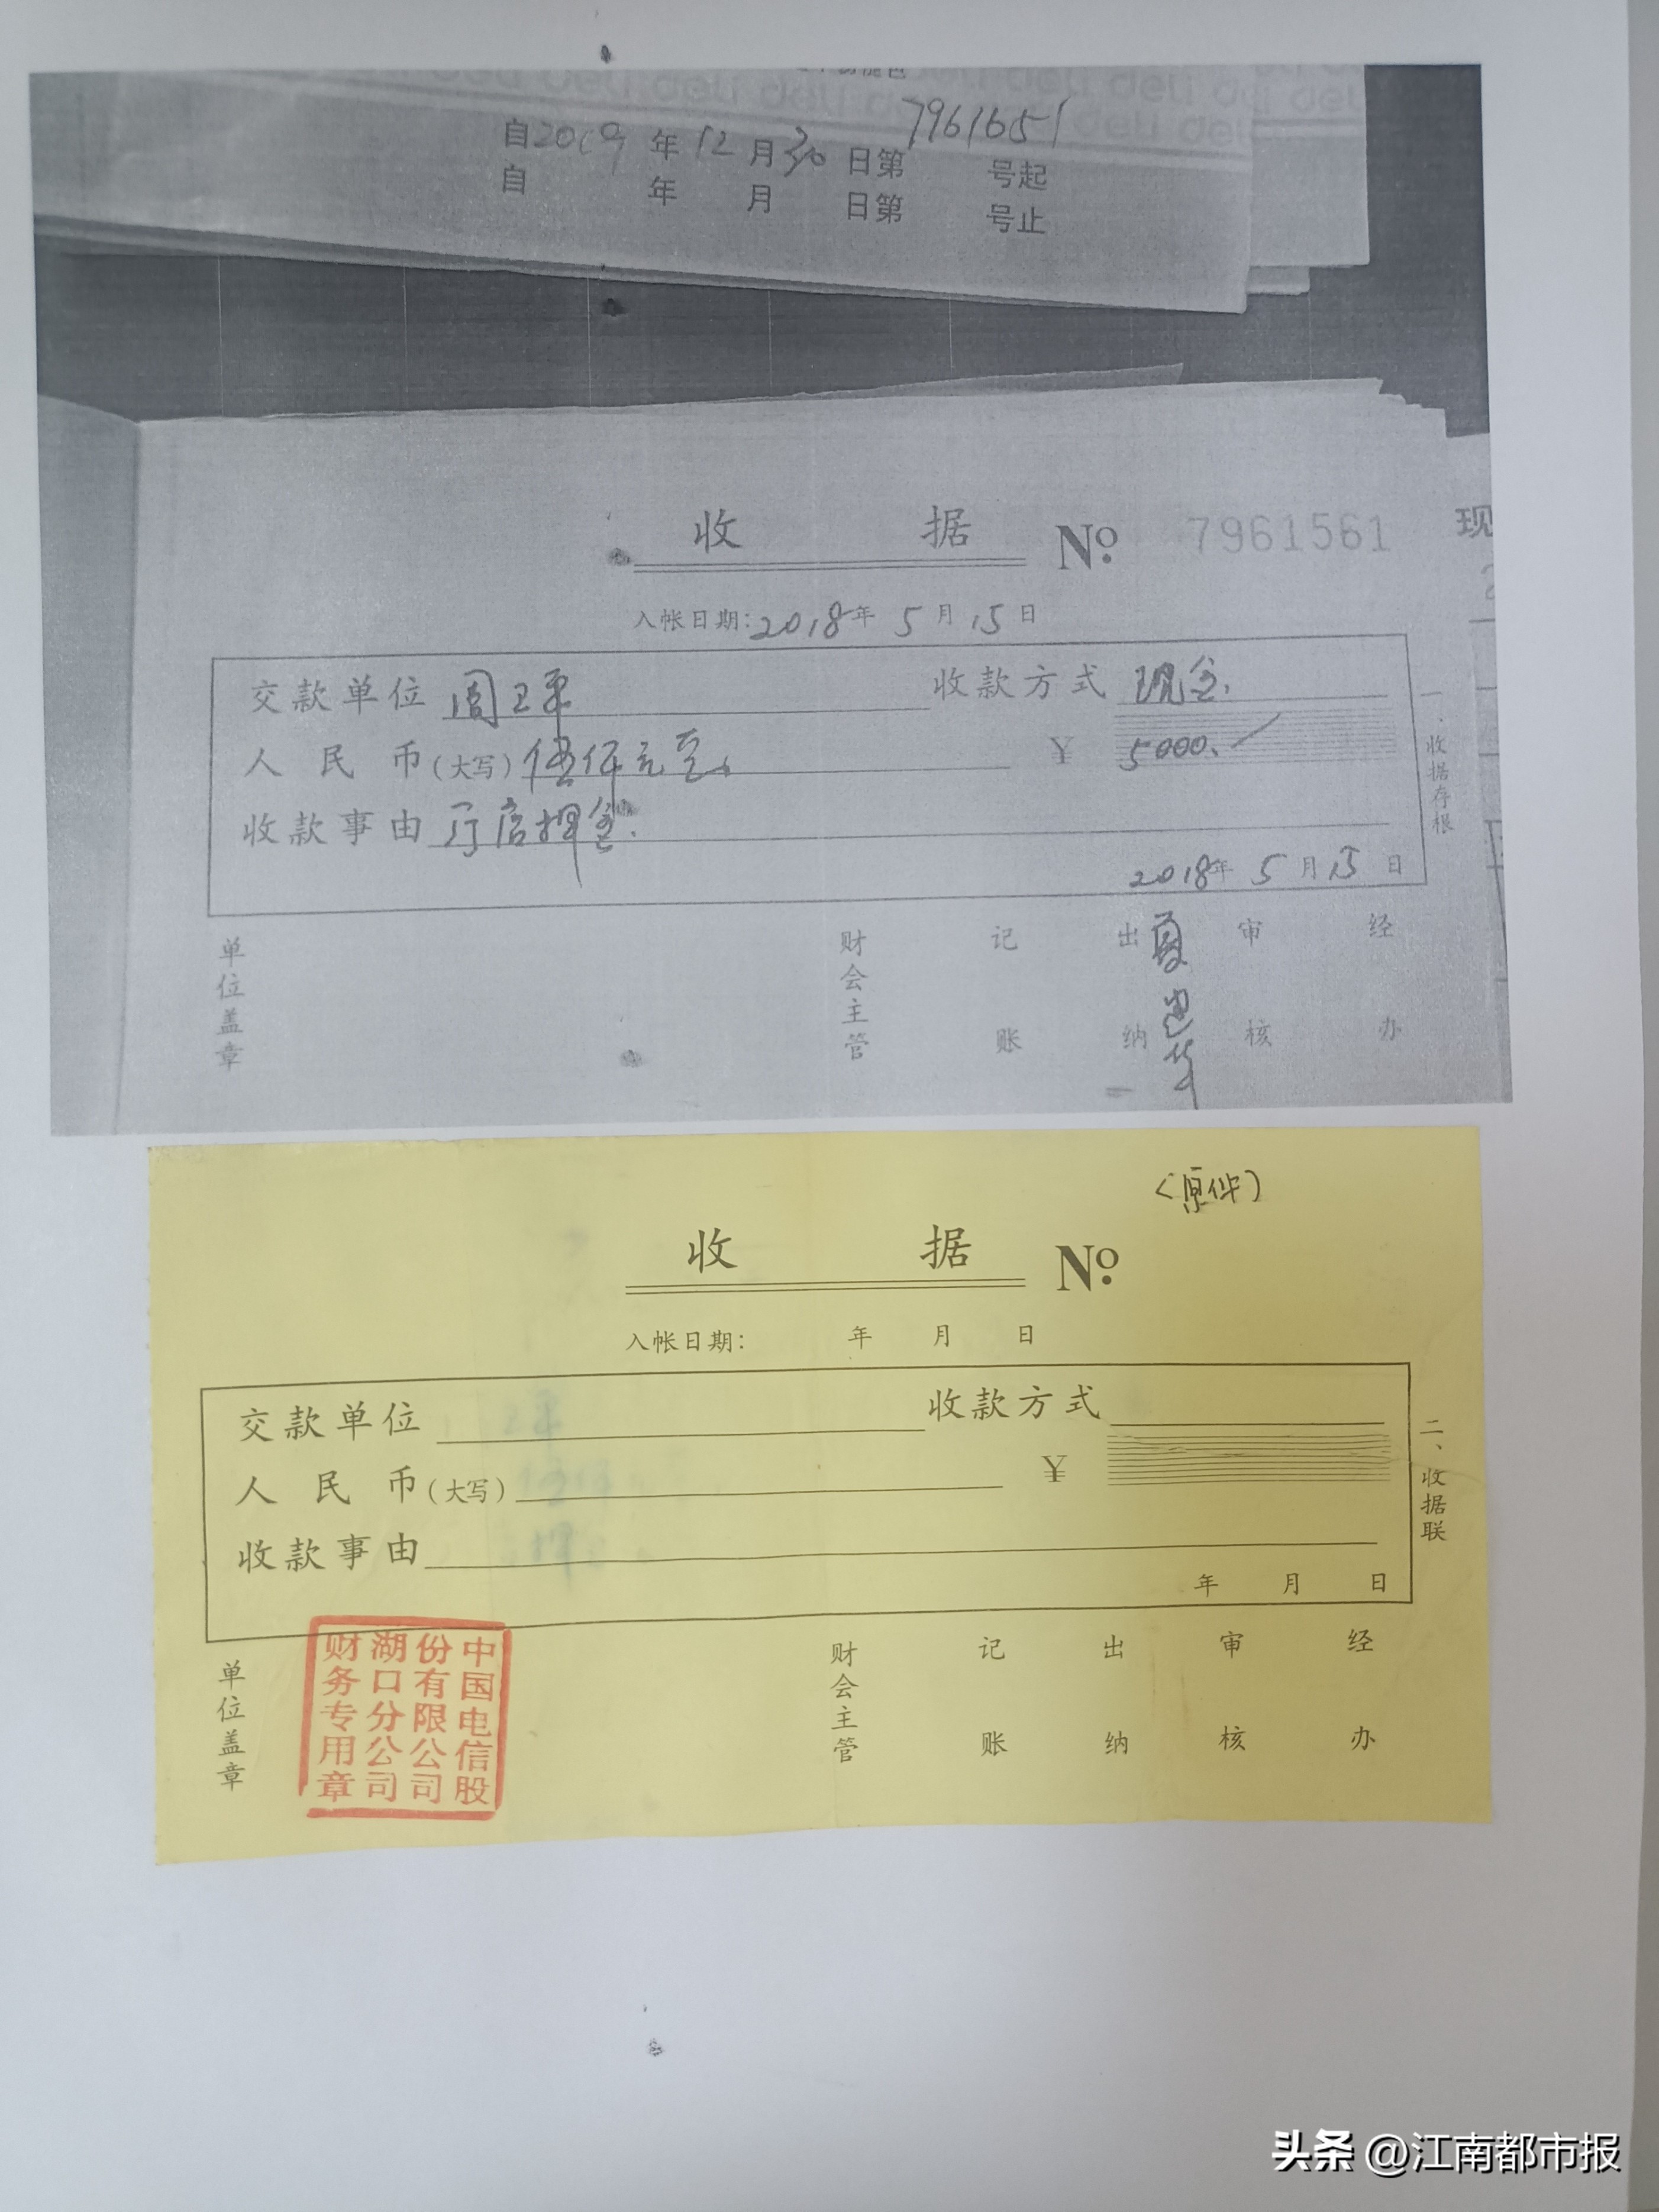 deli deli deli deli deli deli
自2019年12月30日第7961651号起
自 年 月 日第 号止
收 据 No. 7961561
现
入帐日期:2018年5月15日
交款单位 周卫平 收款方式 现金.
人民币(大写) 伍仟元至. ¥ 5000.
收款事由 厅店押金.
一、收据存根
2018年5月15日
单位盖章 财会主管 记账 出纳 审核 经办
(原件)
收 据 No.
入帐日期: 年 月 日
交款单位 收款方式
人民币(大写) ¥
收款事由
年 月 日
二、收据联
单位盖章 财会主管 记账 出纳 审核 经办
中国电信股
份有限公司
湖口分公司
财务专用章
头条 @江南都市报